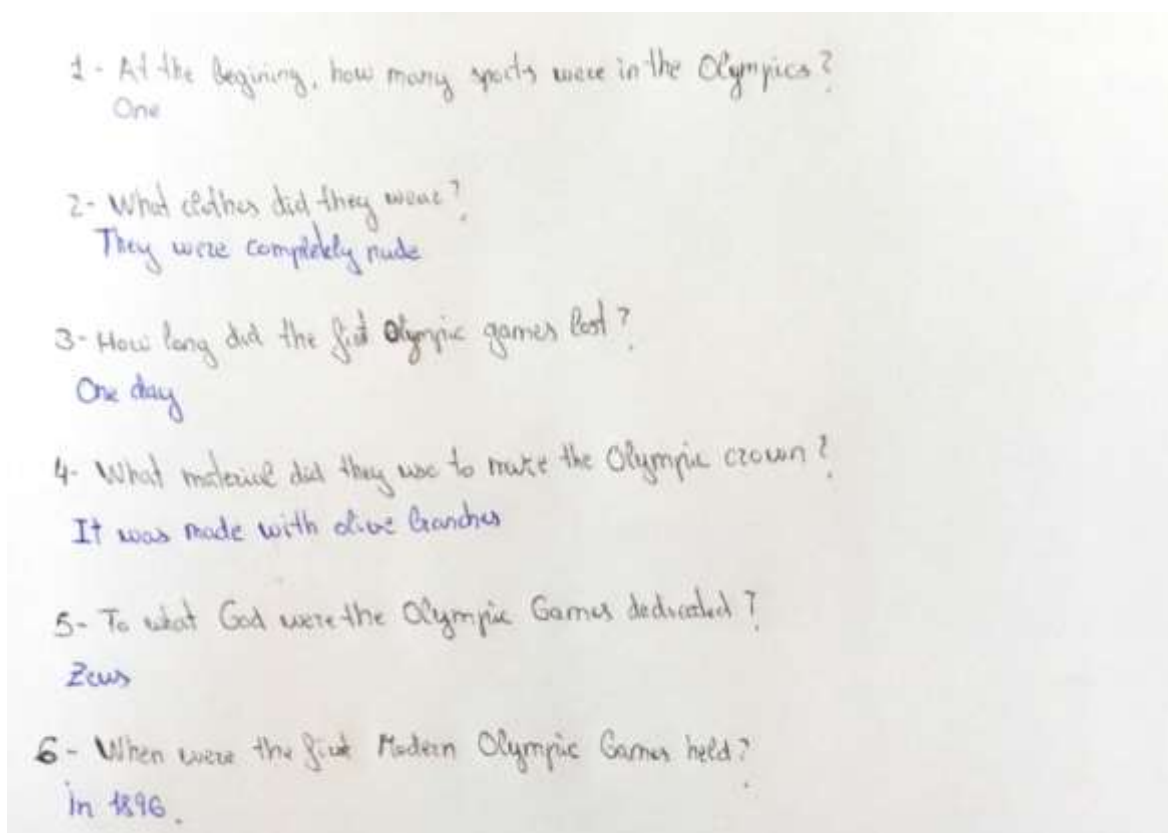 1 - At the begining, how many sports were in the Olympics?
One
2 - What clothes did they wear?
They were completely nude
3 - How long did the first Olympic games last?
One day
4 - What material did they use to make the Olympic crown?
It was made with olive branches
5 - To what God were the Olympic Games dedicated?
Zeus
6 - When were the first Modern Olympic Games held?
in 1896.